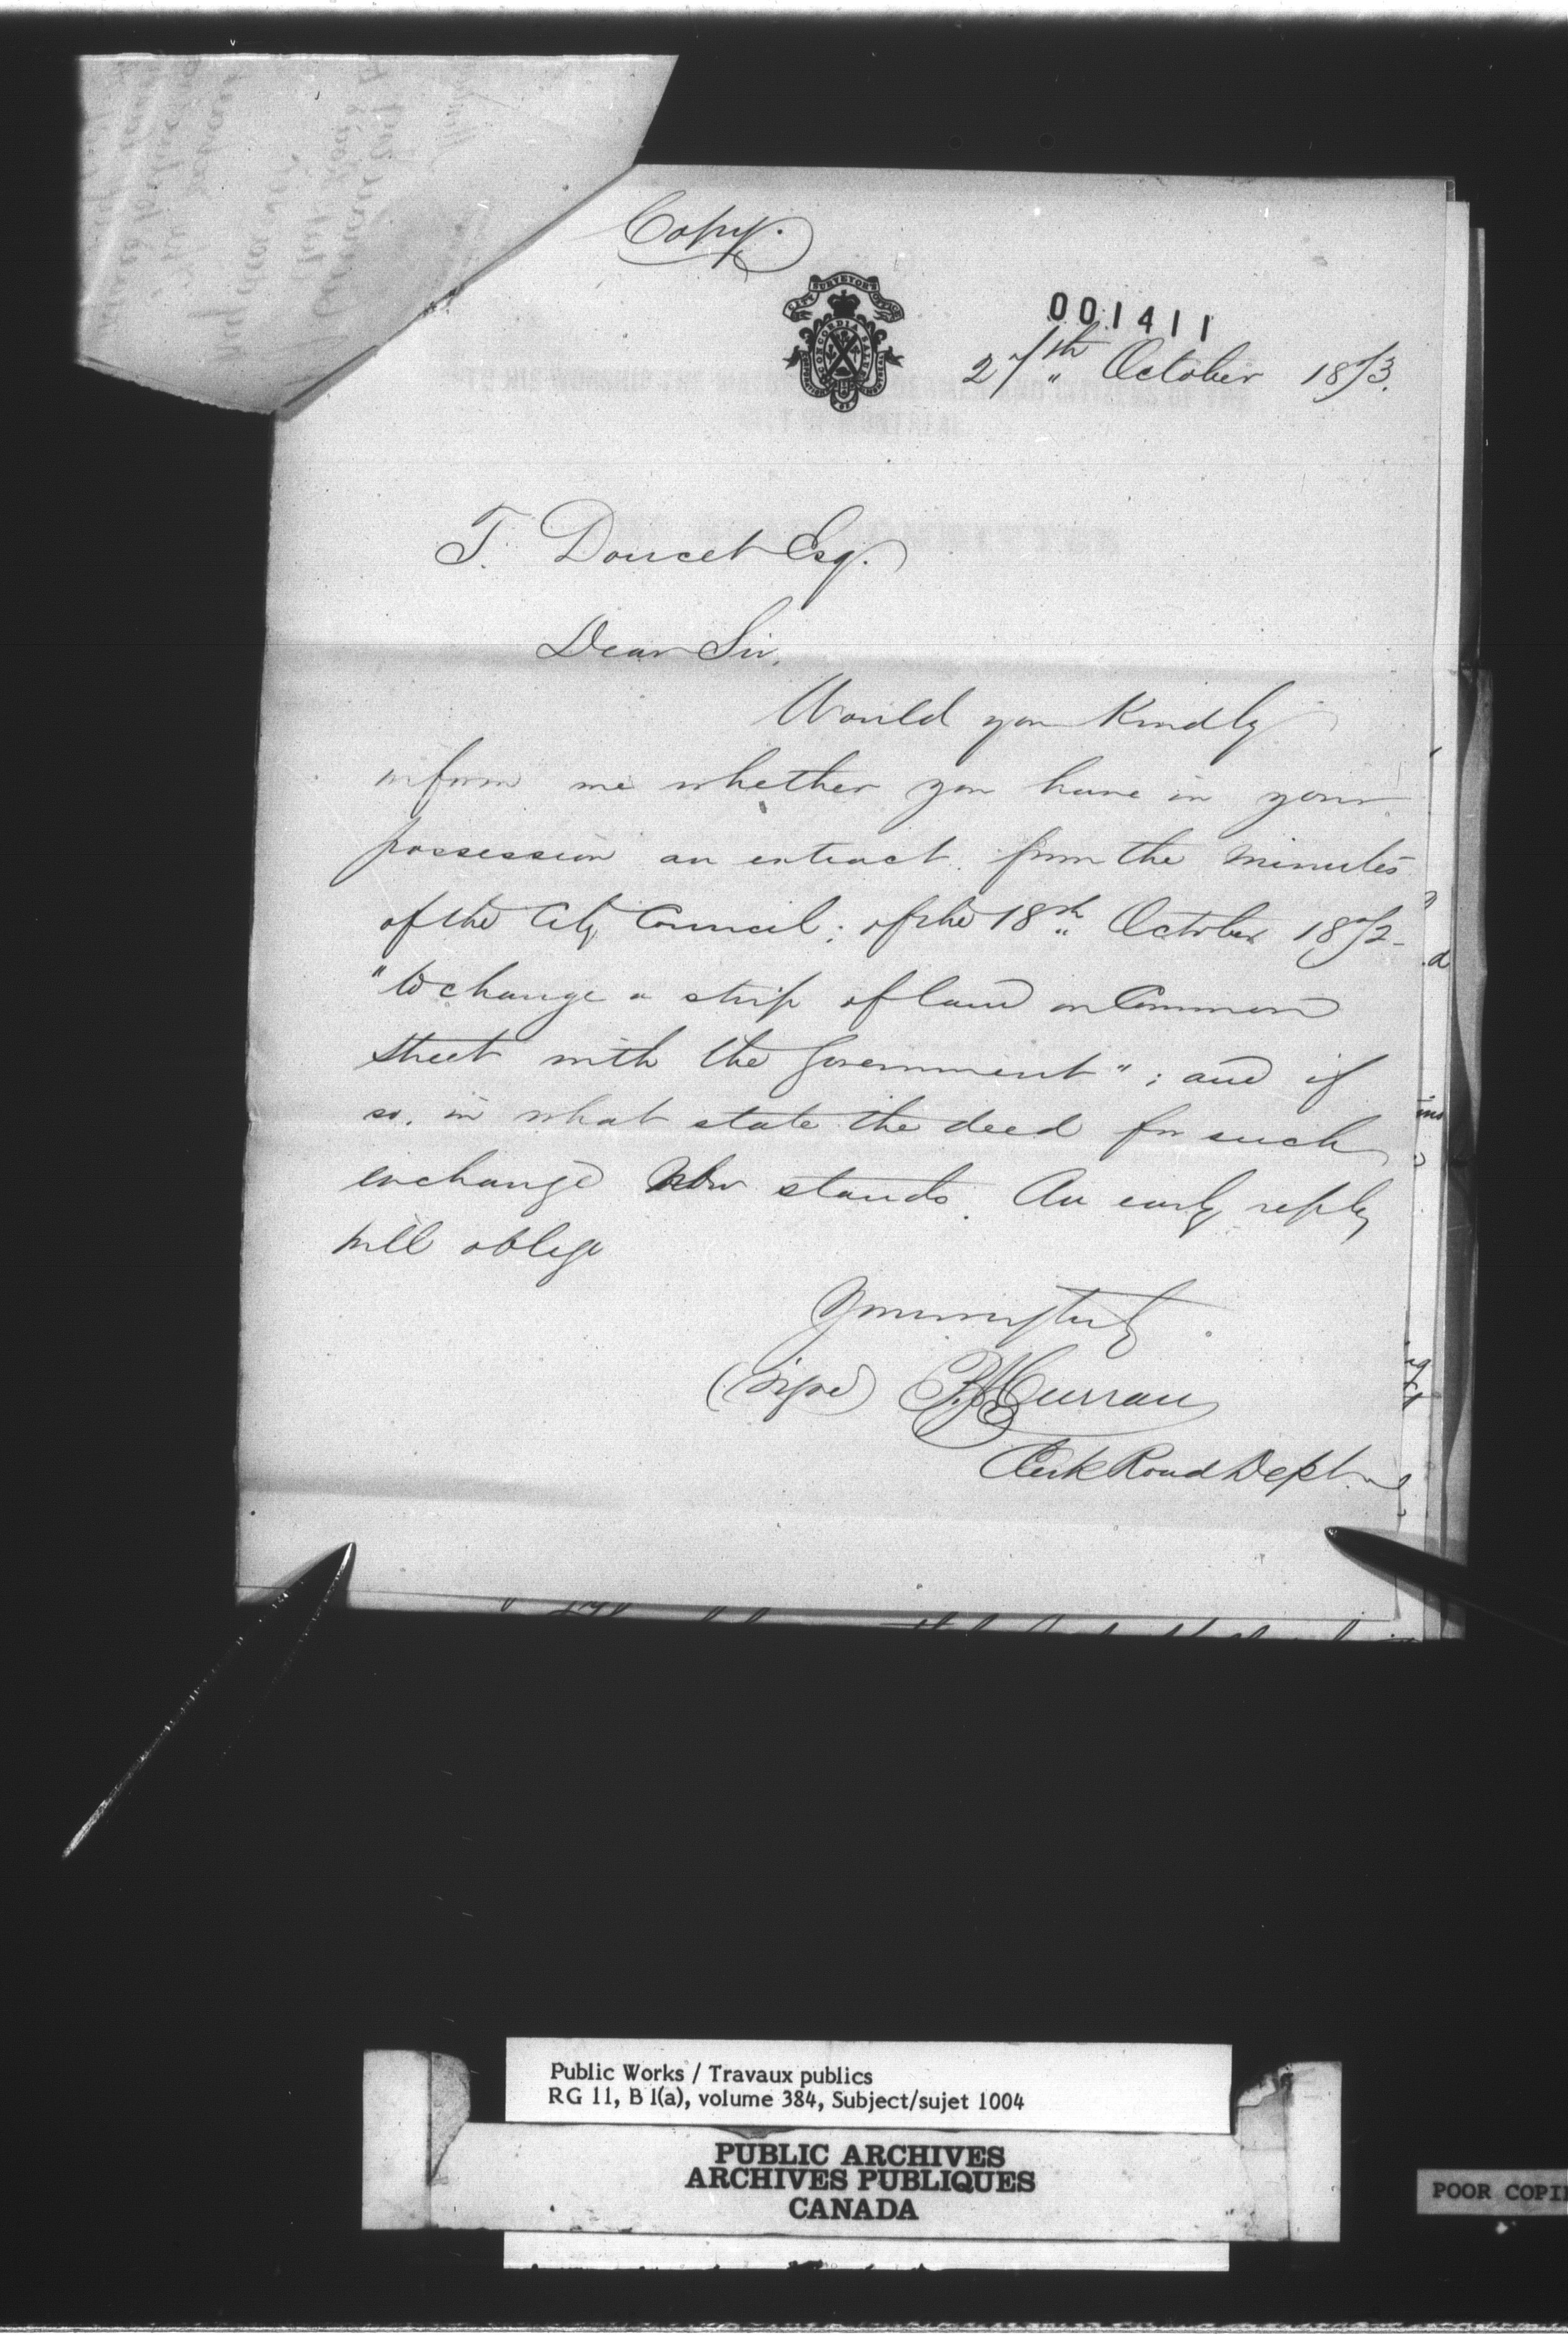 Copy.
CITY SURVEYOR'S OFFICE
CONCORDIA SALUS
001411
27th October 1873.
T. Doucet Esq.
Dear Sir,
Would you Kindly
inform me whether you have in your
possession an extract from the minutes
of the City Council; of the 18th October 1872
"to change a strip of land on Common
Street with the Government"; and if
so, in what state the deed for such
exchange now stands. An early reply
will oblige
Yours truly
(Signed) Curran
Clerk Road Dept.
Public Works / Travaux publics
RG 11, B 1(a), volume 384, Subject/sujet 1004
PUBLIC ARCHIVES
ARCHIVES PUBLIQUES
CANADA
POOR COPI